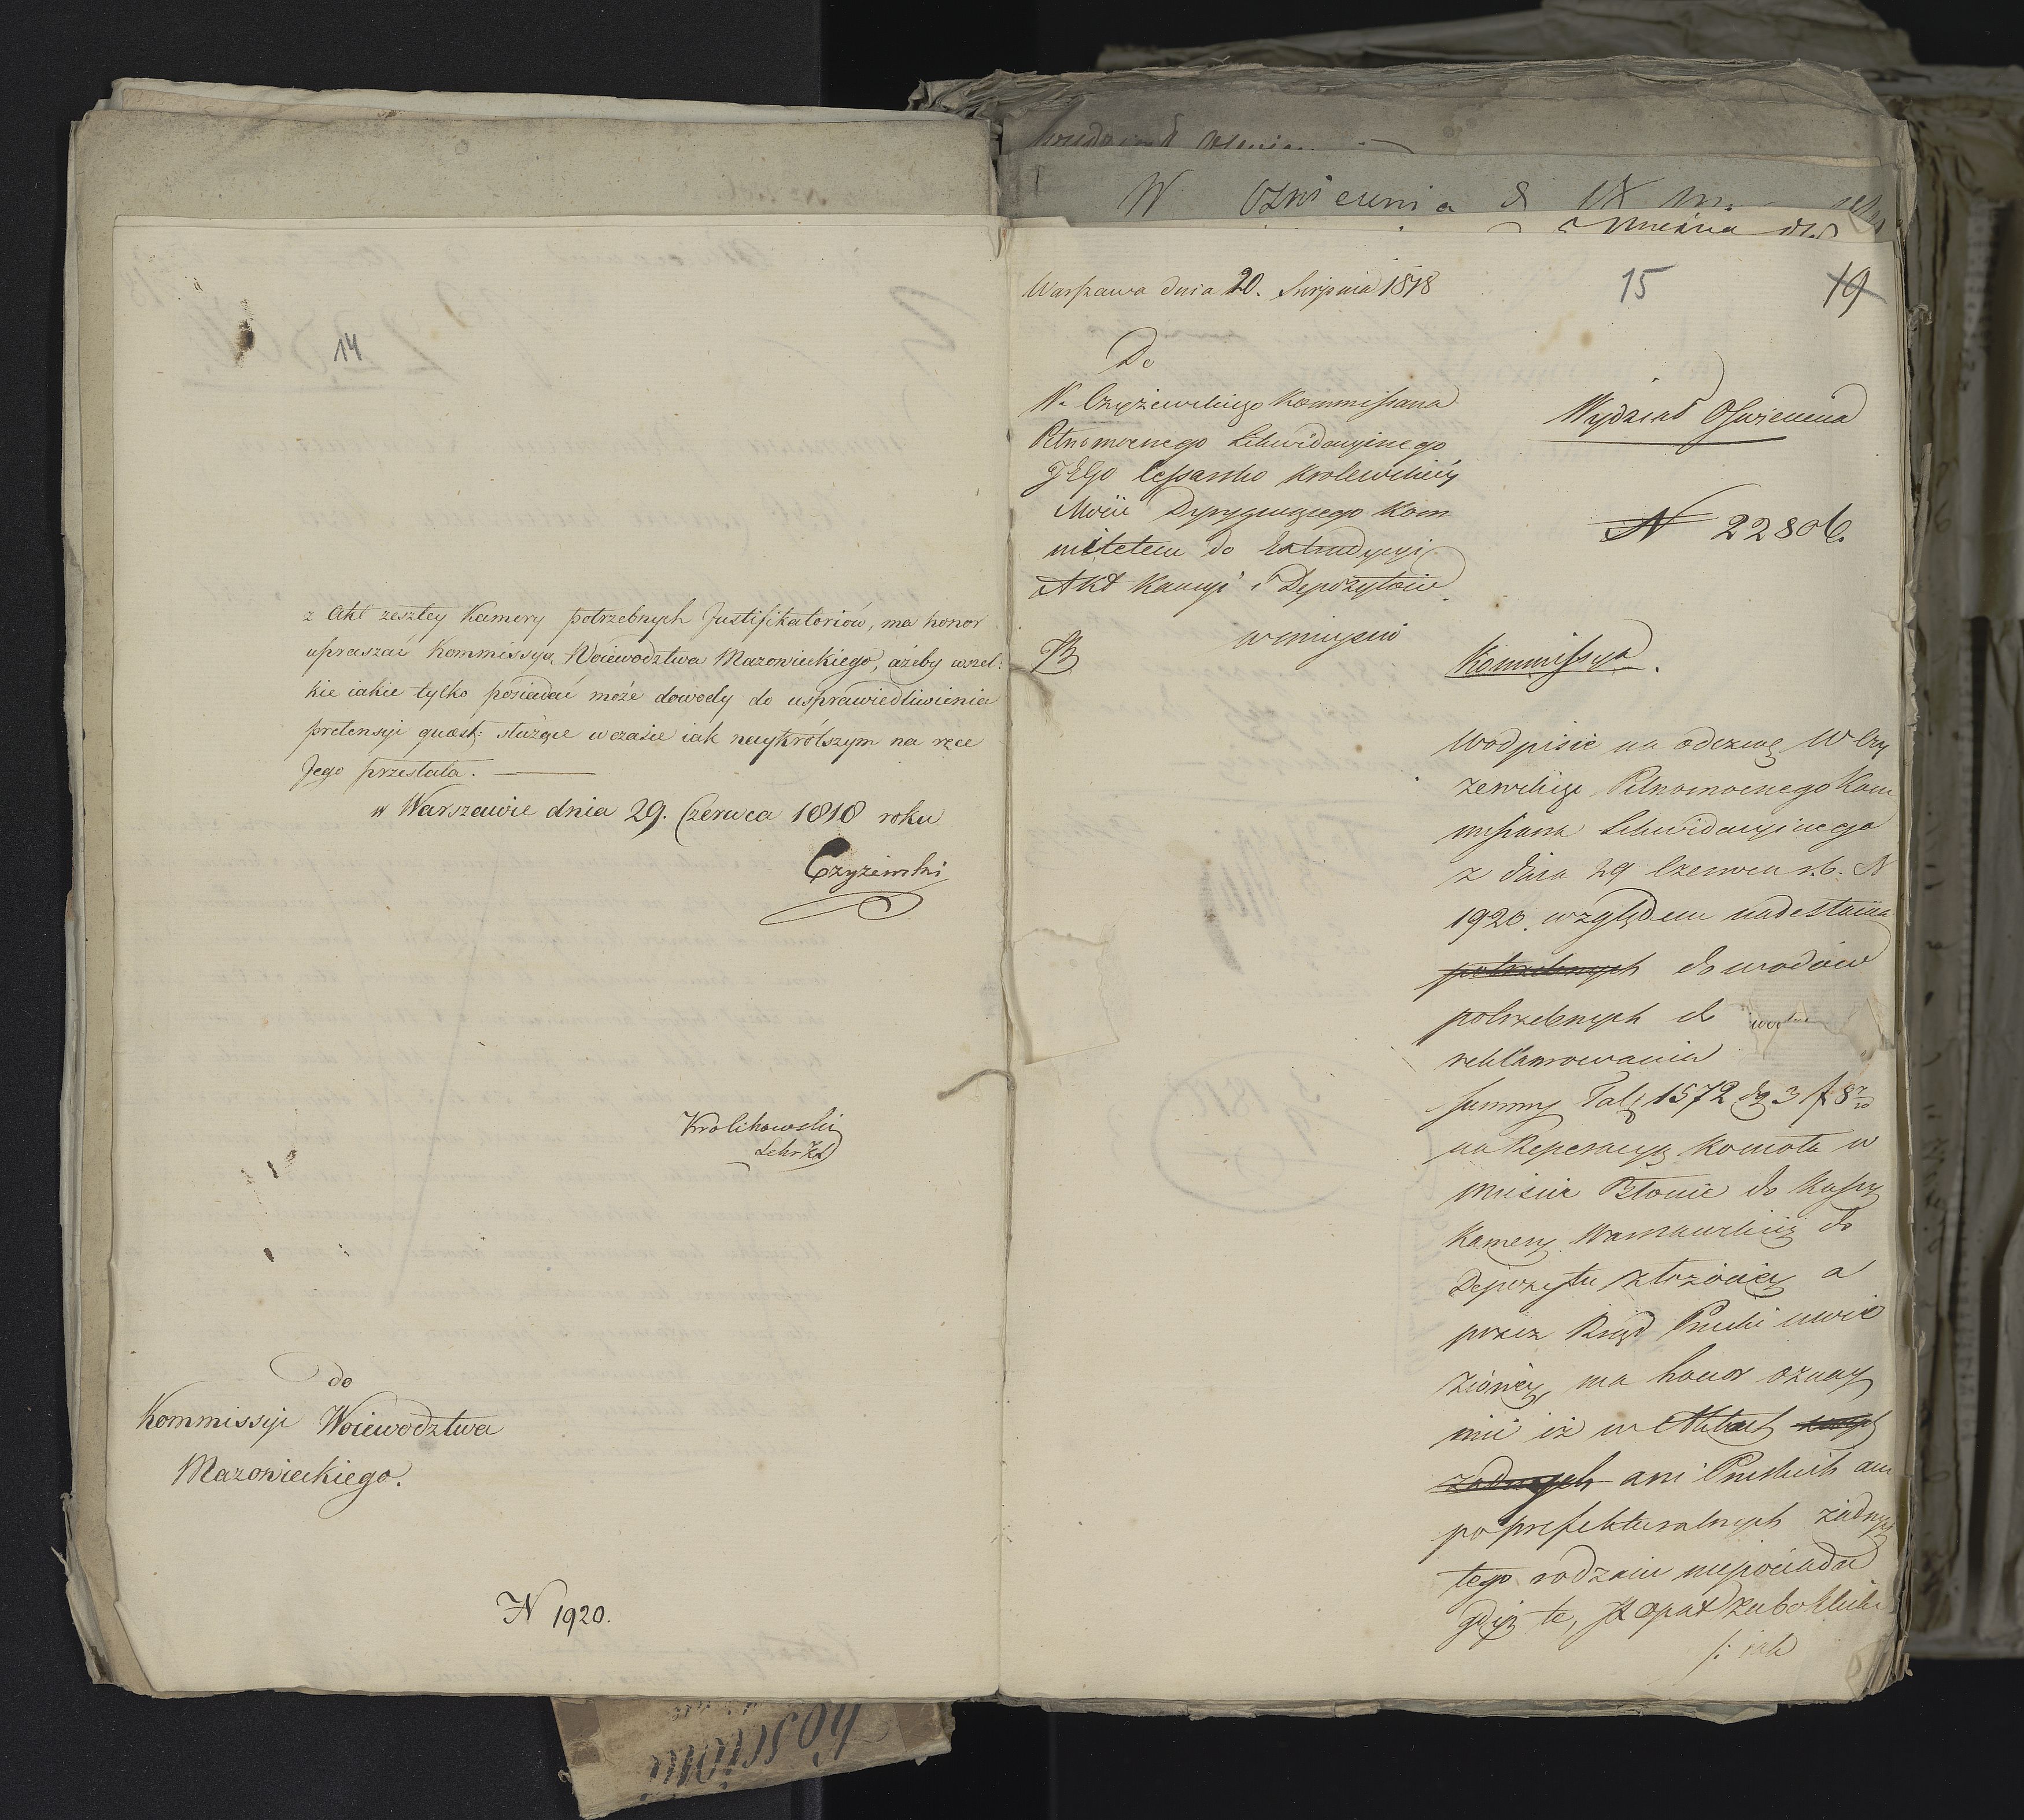 14
z Akt zeszłey Kamery potrzebnych Justifikatoriów, ma honor
upraszać Kommissyą Woiewodztwa Mazowieckiego, ażeby wszel:
kie iakie tylko posiadać może dowody do usprawiedliwienia
pretensyi quaest: służące w czasie iak naykrótszym na ręce
Jego przesłała.
w Warszawie dnia 29. Czerwca 1818 roku
Czyżewski
Krolikowski
do
Kommissyi Woiewodztwa
Mazowieckiego.
N 1920.
Warszawa dnia 20. Sierpnia 1818
15
19
Do
W. Czyżewskiego Kommissarza
Pełnomocnego Likwidacyinego
JEGO Cessarsko Krolewskiey
Mości Dyryguiącego Kom
mitetem do Extradycyi
Akt Kaucyi i Depozytów
w mieyscu
Wydział Oświecenia
N 22806.
Kommissya
W odpisie na odezwę W Czy
żewskiego Pełnomocnego Kom
missarza Likwidacyinego
z dnia 29 Czerwca r.b. N
1920. względem nadesłania
potrzebnych dowodów
potrzebnych do
reklamowania
Summy Tal 1572 dg 3 f 8
na Reperacyą Kościoła w
mieście Błonie do Kassy
Kamery Warszawskiey do
Depozytu złożoney a
przez Rząd Pruski uwie
zioney, ma honor oznay
mić iż w Aktach
żadnych ani Pruskich ani
po prefekturalnych żadnych
tego rodzaiu nieposiada
gdyż te, JX Opat Zaboklicki
/: iak